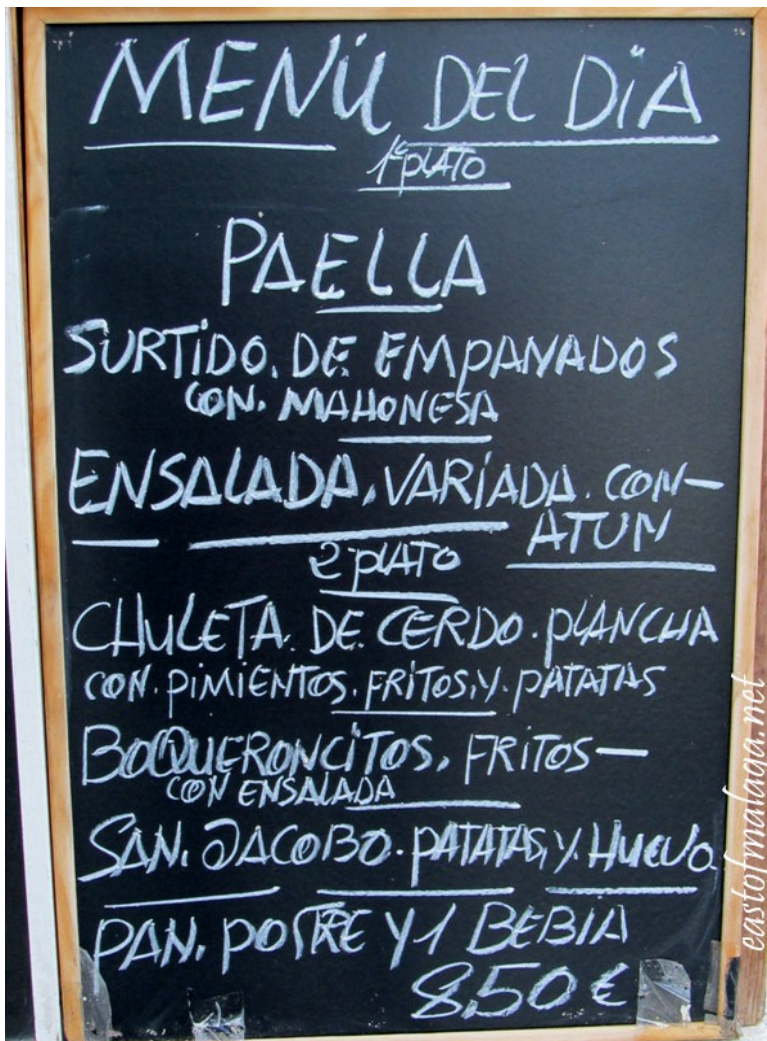 MENÚ DEL DiA
1º PLATO
PAELLA
SURTiDO. DE EMPANADOS
CON. MAHONESA
ENSALADA, VARiADA. CON-
ATUN
2 PLATO
CHULETA. DE. CERDO. PLANCHA
CON. PiMiENTOS. FRiTOS, Y. PATATAS
BOQUERONCiTOS, FRiTOS-
CON ENSALADA
SAN. JACOBO. PATATAS, Y. HUEVO.
PAN, POSTRE Y 1 BEBIA
8,50 €
eastofmalaga.net